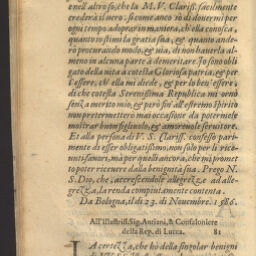 e nell'altro so, che la M.V. Clariss. facilmente
crederà il vero: sì come ancorò di douermi per
ogni tempo adoprar in maniera, ch'ella conosca,
quanto io stimi la gratia sua, & quanto ande-
rò procurando modo, & via, di non hauerla al-
meno in alcuna parte à demeritare. Io sono obli-
gato della vita à cotesta Gloriosa patria, & per
l'essere, ch'ella mi diede, & per li ben'esseri,
di che cotesta Serenissima Republica mi ornò
senza merito mio, & però sin' all'estremo spirito
non pretermetterò mai occasione da potermele
mostrar buon figliuolo, & amoreuole seruitore.
Et alla persona di V. S. Clariss. confesso pari-
mente di esser obligatissimo, non solo per li rice-
uuti fauori, mà per quelli ancora, che mi promet-
to poter riceuere dalla benignità sua. Prego N.
S. Dio, che accrescendole allegrezze ad alle-
grezza, la renda compiutamente contenta.
Da Bologna, il dì 23. di Nouembre. 1586.
All'Illustriss. Sig. Antiani, & Confaloniere
della Rep. di Lucca. 81
LA certezza, che hò della singolar benigni